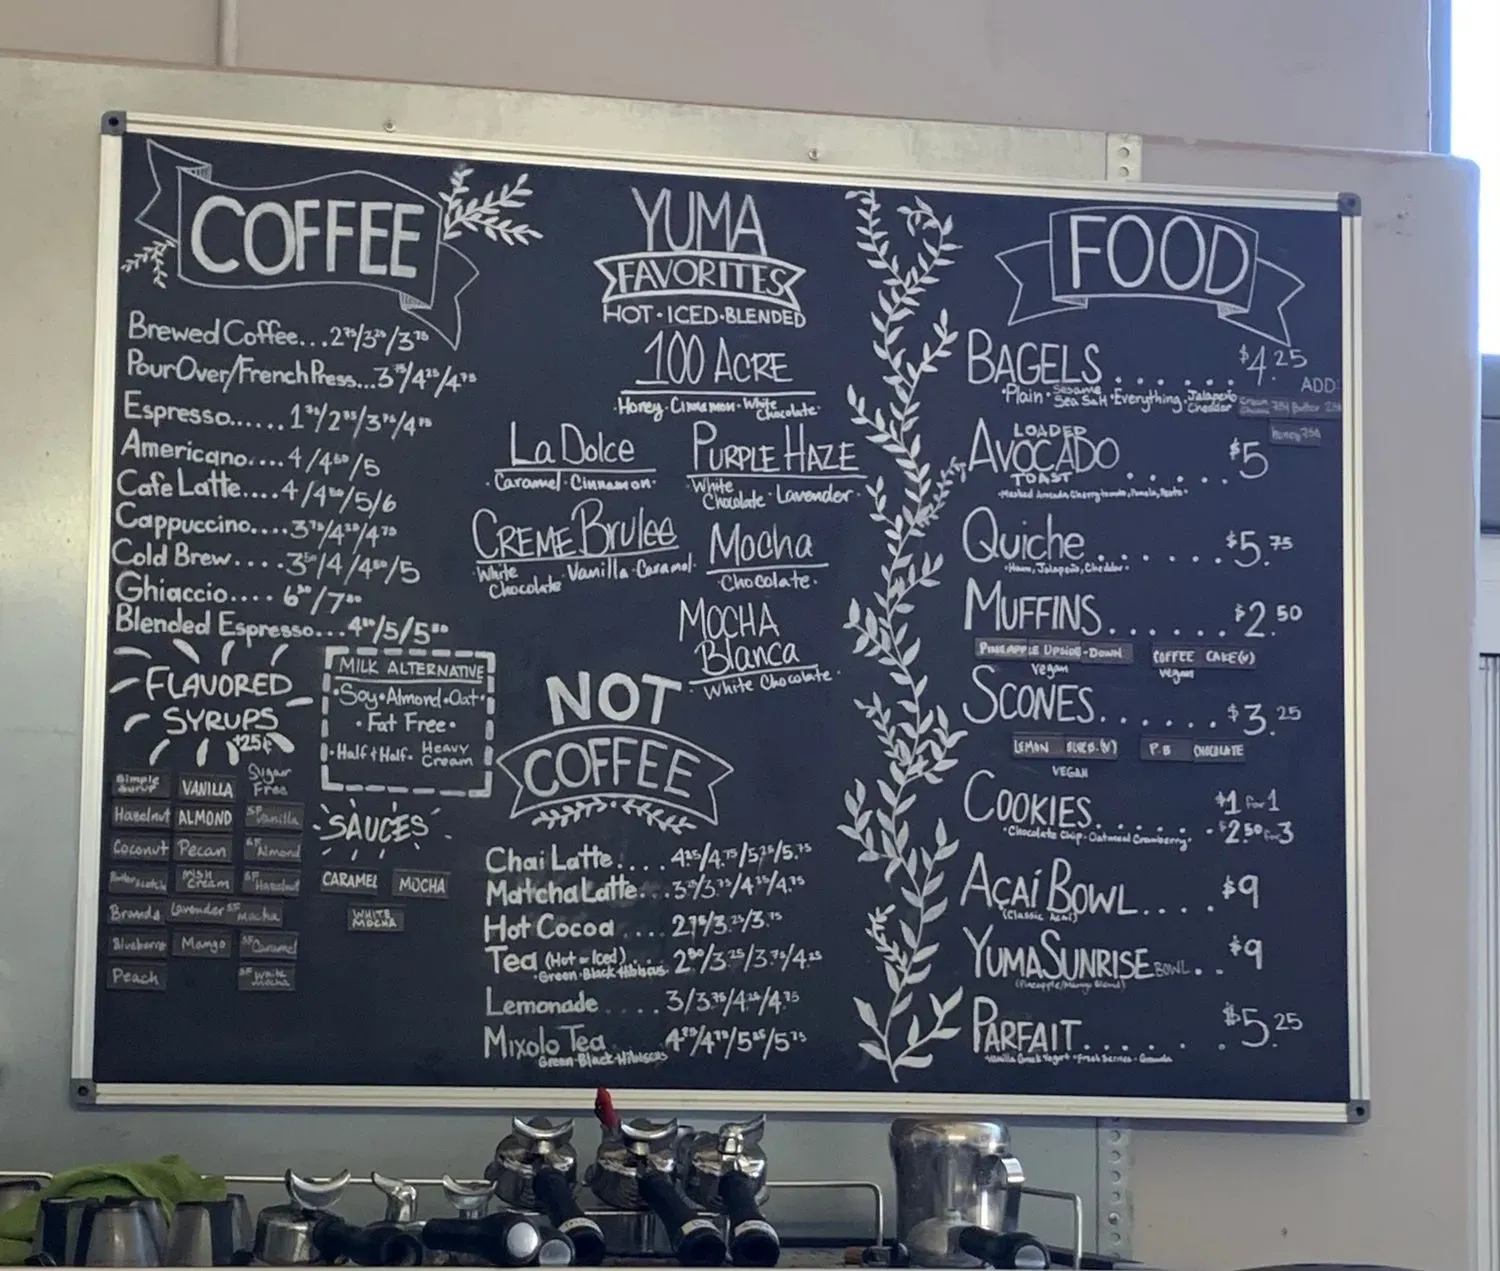 COFFEE
Brewed Coffee...2⁷⁵/3²⁵/3⁷⁵
Pour Over/French Press...3⁷⁵/4²⁵/4⁷⁵
Espresso......1⁷⁵/2⁷⁵/3⁷⁵/4⁷⁵
Americano....4/4⁵⁰/5
Cafe Latte....4/4⁵⁰/5/6
Cappuccino....3⁷⁵/4²⁵/4⁷⁵
Cold Brew....3⁵⁰/4/4⁵⁰/5
Ghiaccio....6⁵⁰/7⁵⁰
Blended Espresso...4⁵⁰/5/5⁵⁰
FLAVORED
SYRUPS
+25¢
Simple Syrup VANILLA Sugar Free
Hazelnut ALMOND SF Vanilla
Coconut Pecan SF Almond
Butterscotch Irish Cream SF Hazelnut
Brandy Lavender SF Mocha
Blueberry Mango SF Caramel
Peach SF White Mocha
MILK ALTERNATIVE
·Soy·Almond·Oat·
·Fat Free·
·Half+Half· Heavy Cream
SAUCES
CARAMEL MOCHA
WHITE MOCHA
YUMA
FAVORITES
HOT·ICED·BLENDED
100 ACRE
·Honey·Cinnamon·White Chocolate·
La Dolce
·Caramel·Cinnamon·
PURPLE HAZE
·White Chocolate·Lavender·
CREME Brulee
·White Chocolate·Vanilla·Caramel·
Mocha
·Chocolate·
MOCHA
Blanca
·White Chocolate·
NOT
COFFEE
Chai Latte....4²⁵/4.⁷⁵/5.²⁵/5.⁷⁵
Matcha Latte...3²⁵/3⁷⁵/4²⁵/4.⁷⁵
Hot Cocoa....2⁷⁵/3.²⁵/3.⁷⁵
Tea (Hot or Iced)...2⁵⁰/3.²⁵/3.⁷⁵/4.²⁵
·Green·Black·Hibiscus
Lemonade....3/3.⁷⁵/4.²⁵/4.⁷⁵
Mixolo Tea 4²⁵/4⁷⁵/5²⁵/5⁷⁵
Green·Black·Hibiscus
FOOD
BAGELS.......$4.25
·Plain·Sesame Sea Salt·Everything·Jalapeño Cheddar
ADD:
Cream Cheese 75¢ Butter 25¢
honey 25¢
LOADED
AVOCADO......$5
TOAST
Quiche.......$5.75
·Ham, Jalapeño, Cheddar·
MUFFINS......$2.50
PINEAPPLE UPSIDE-DOWN COFFEE CAKE(V)
Vegan Vegan
SCONES......$3.25
LEMON BLUEB.(V) P.B CHOCOLATE
VEGAN
COOKIES $1 for 1
·Chocolate Chip·Oatmeal Cranberry· ·$2.50 for 3
AÇAÍ BOWL....$9
(Classic Açaí)
YUMA SUNRISE BOWL..$9
(Pineapple/Mango Blend)
PARFAIT......$5.25
·Vanilla Greek Yogurt·Fresh Berries·Granola